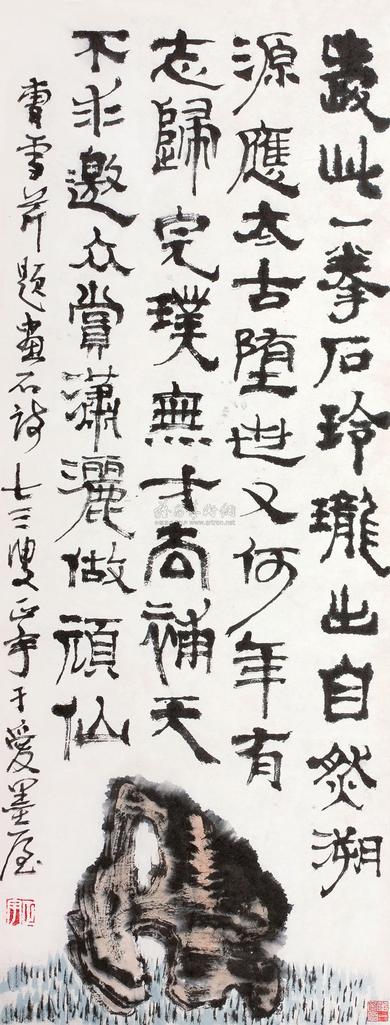 愛此一拳石玲瓏出自然溯
源應太古墮世又何年有
志歸完璞無才去補天
不求邀众賞瀟灑做頑仙
曹雪芹題畫石詩 七三叟正宇于愛墨屋